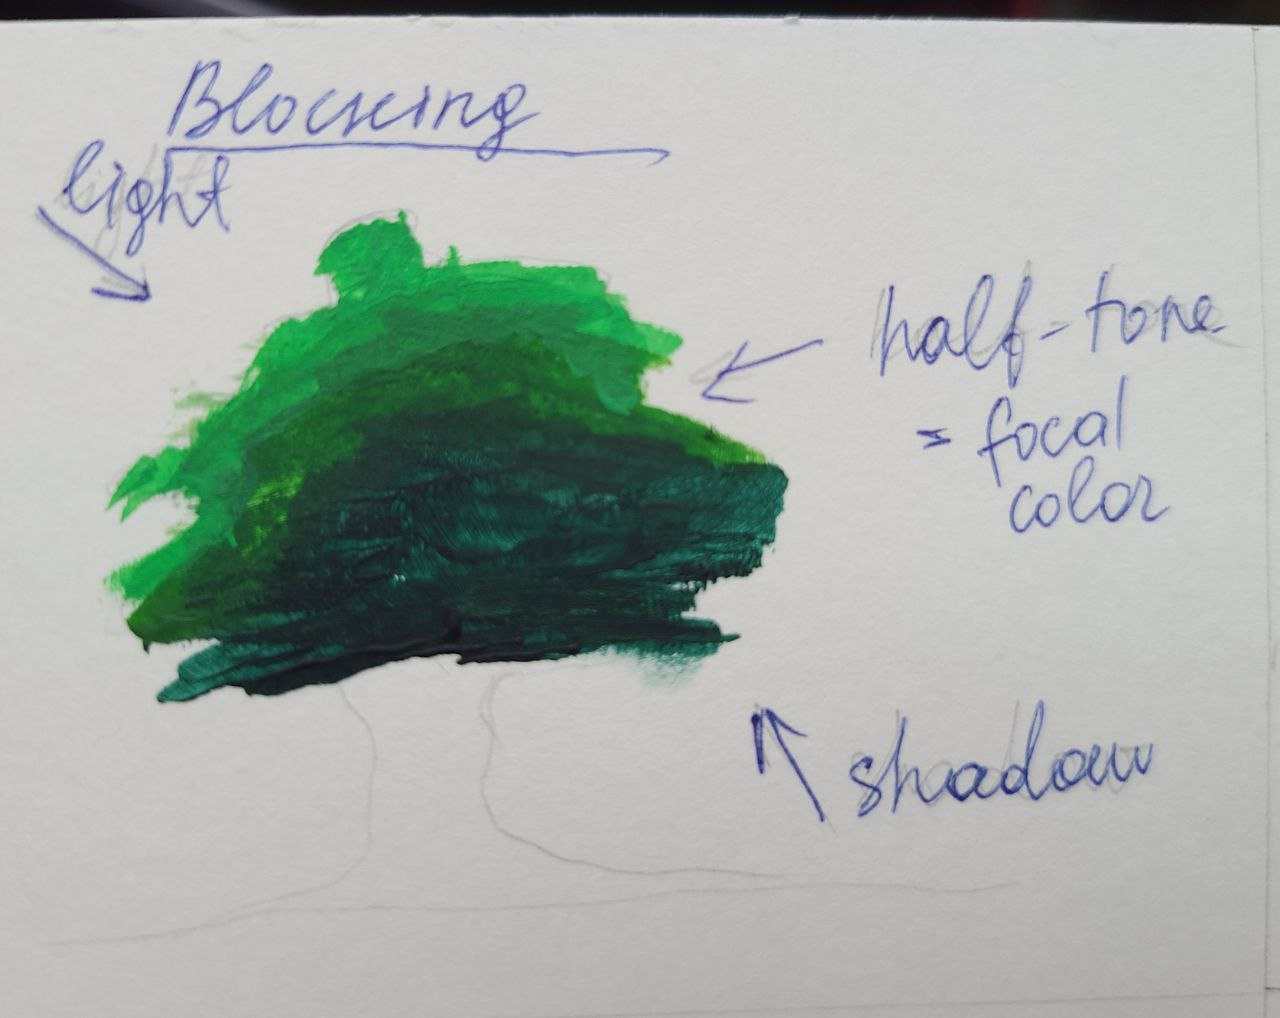 Blocking
light
half-tone
= focal
color
shadow